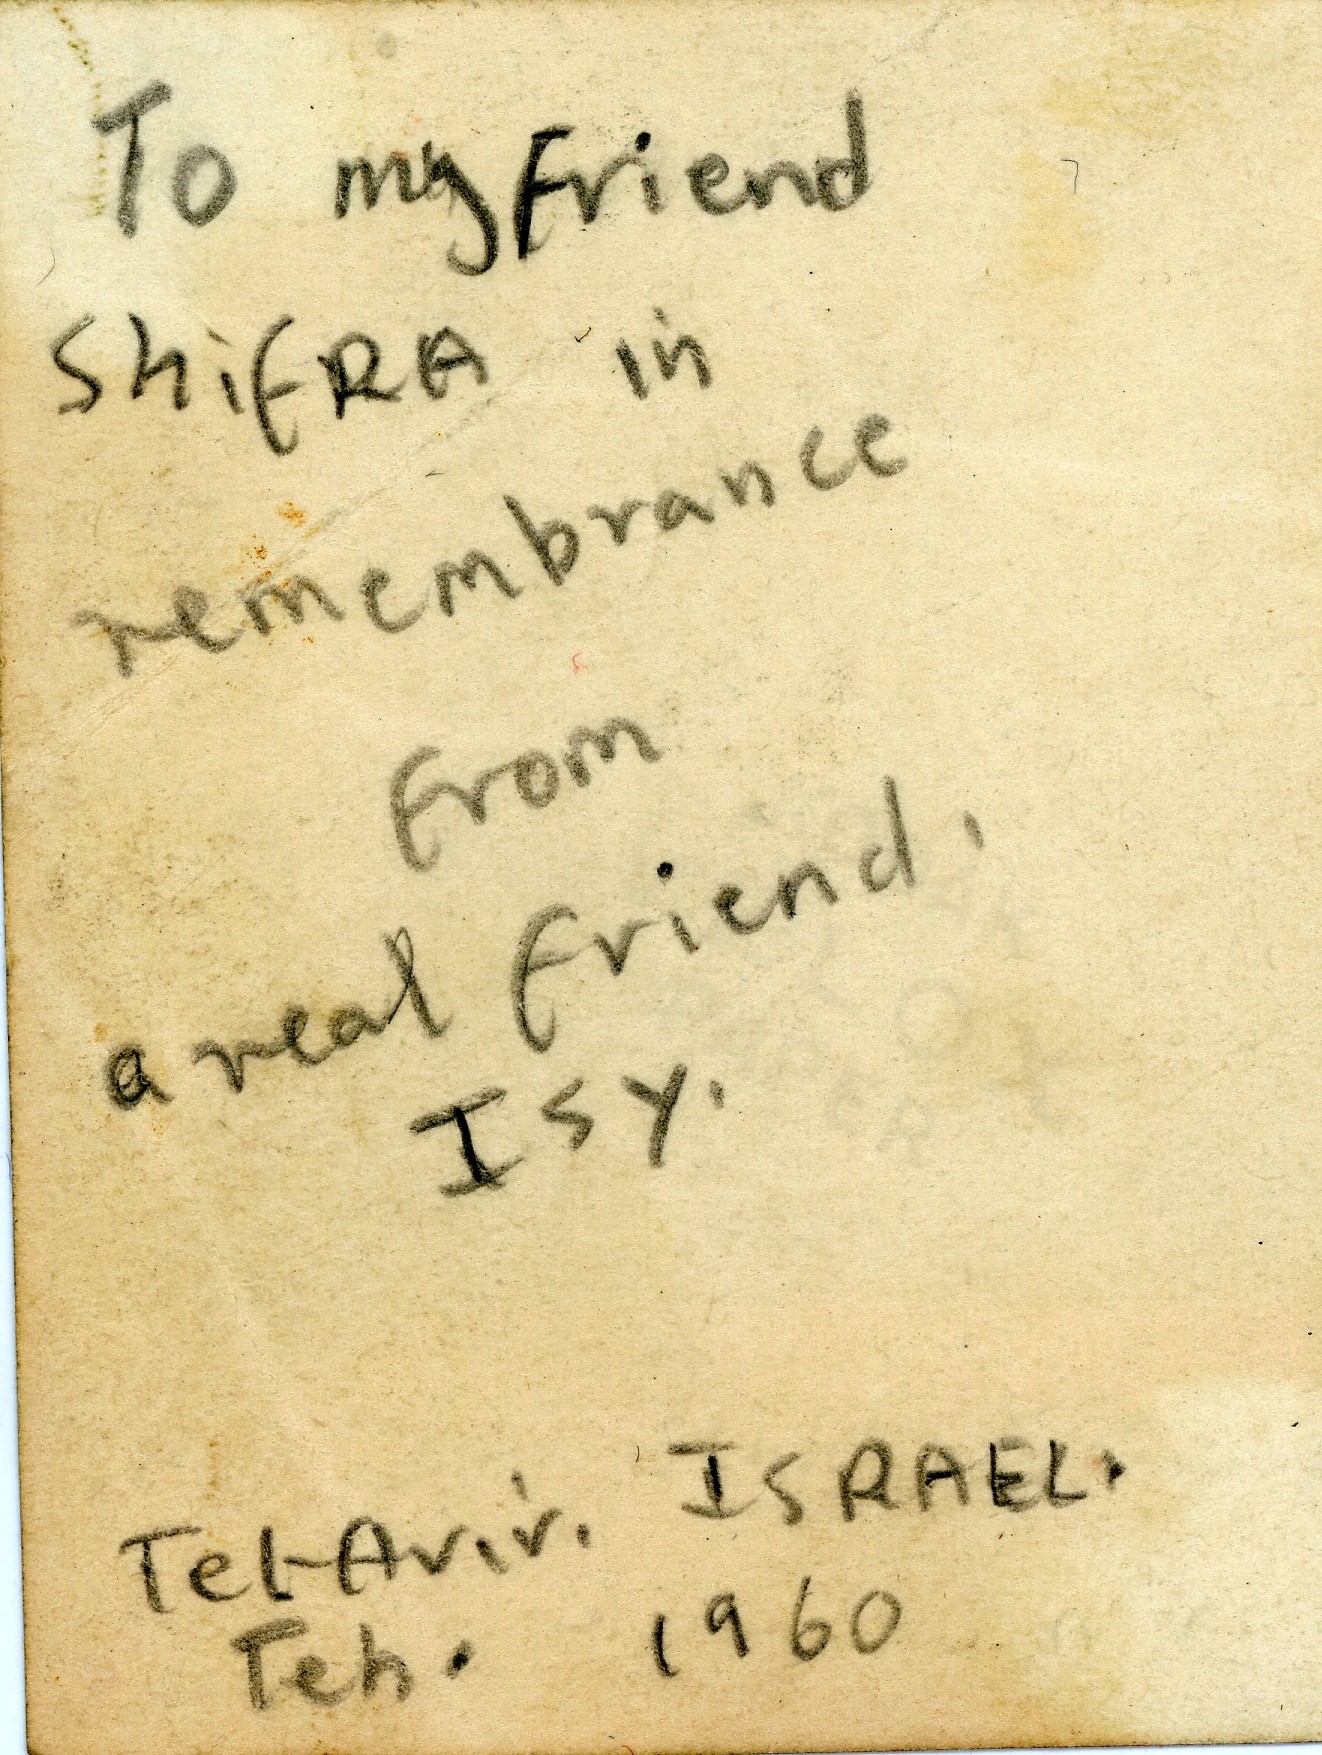 To my friend
ShifRA in
remembrance
from
a real friend.
Isy.
Tel-Aviv. ISRAEL.
Teh. 1960